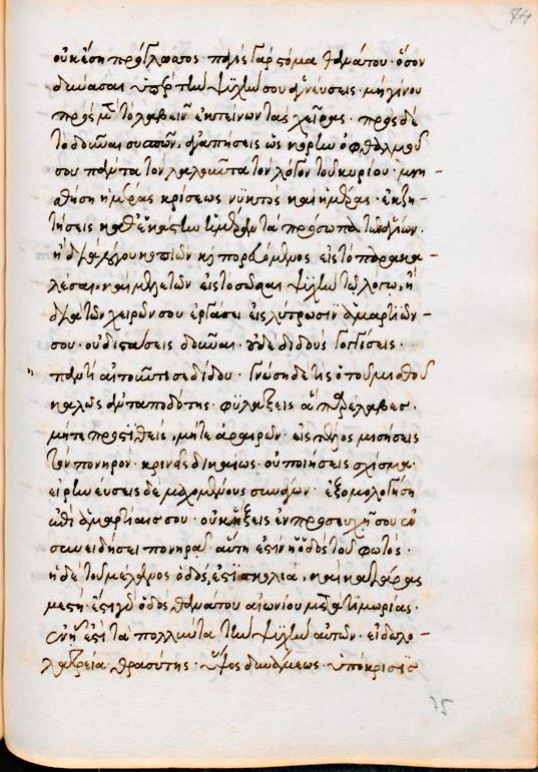 οὐκ ἔση πρόγλωσσος· παγὶς γὰρ στόμα θανάτου· ὅσον
δύνασαι ὑπὲρ τὴν ψυχήν σου ἁγνεύσεις· μὴ γίνου
πρὸς μὲν τὸ λαβεῖν ἐκτείνων τὰς χεῖρας· πρὸς δὲ
τὸ δοῦναι συσπῶν. ἀγαπήσεις ὡς κόρην ὀφθαλμοῦ
σου πάντα τὸν λαλοῦντα τὸν λόγον τοῦ κυρίου· μνη-
σθήση ἡμέρας κρίσεως νυκτὸς καὶ ἡμέρας· ἐκζη-
τήσεις καθ' ἑκάστην ἡμέραν τὰ πρόσωπα τῶν ἁγίων.
ἢ διὰ λόγου κοπιῶν καὶ πορευόμενος εἰς τὸ παρακα-
λέσαι, καὶ μελετῶν εἰς τὸ σῶσαι ψυχὴν τῷ λόγῳ, ἢ
διὰ τῶν χειρῶν σου ἐργάση εἰς λύτρωσιν ἁμαρτιῶν
σου· οὐ διστάσεις δοῦναι· οὐδὲ διδοὺς γογγύσεις·
παντὶ αἰτοῦντί σε δίδου· γνώση δὲ τίς ὁ τοῦ μισθοῦ
καλὸς ἀνταποδότης· φυλάξεις ἃ παρέλαβες·
μήτε προστιθεὶς, μήτε ἀφαιρῶν· εἰς τέλος μισήσεις
τὸν πονηρόν· κρινεῖς δικαίως· οὐ ποιήσεις σχίσμα·
εἰρηνεύσεις δὲ μαχομένους συναγαγών· ἐξομολογήση
ἐπὶ ἁμαρτίαις σου· οὐκ ἥξεις ἐν προσευχῇ σου ἐν
συνειδήσει πονηρᾷ· αὕτη ἐστὶν ἡ ὁδὸς τοῦ φωτός·
ἡ δὲ τοῦ μέλανος ὁδός, ἐστὶ σκολιὰ, καὶ κατάρας
μεστή· ἔστι γὰρ ὁδὸς θανάτου αἰωνίου μετὰ τιμωρίας·
ἐν ᾗ ἐστὶ τὰ ἀπολλύντα τὴν ψυχὴν αὐτῶν· εἰδωλο-
λατρεία· θρασύτης· ὕψος δυνάμεως· ὑπόκρισις
75